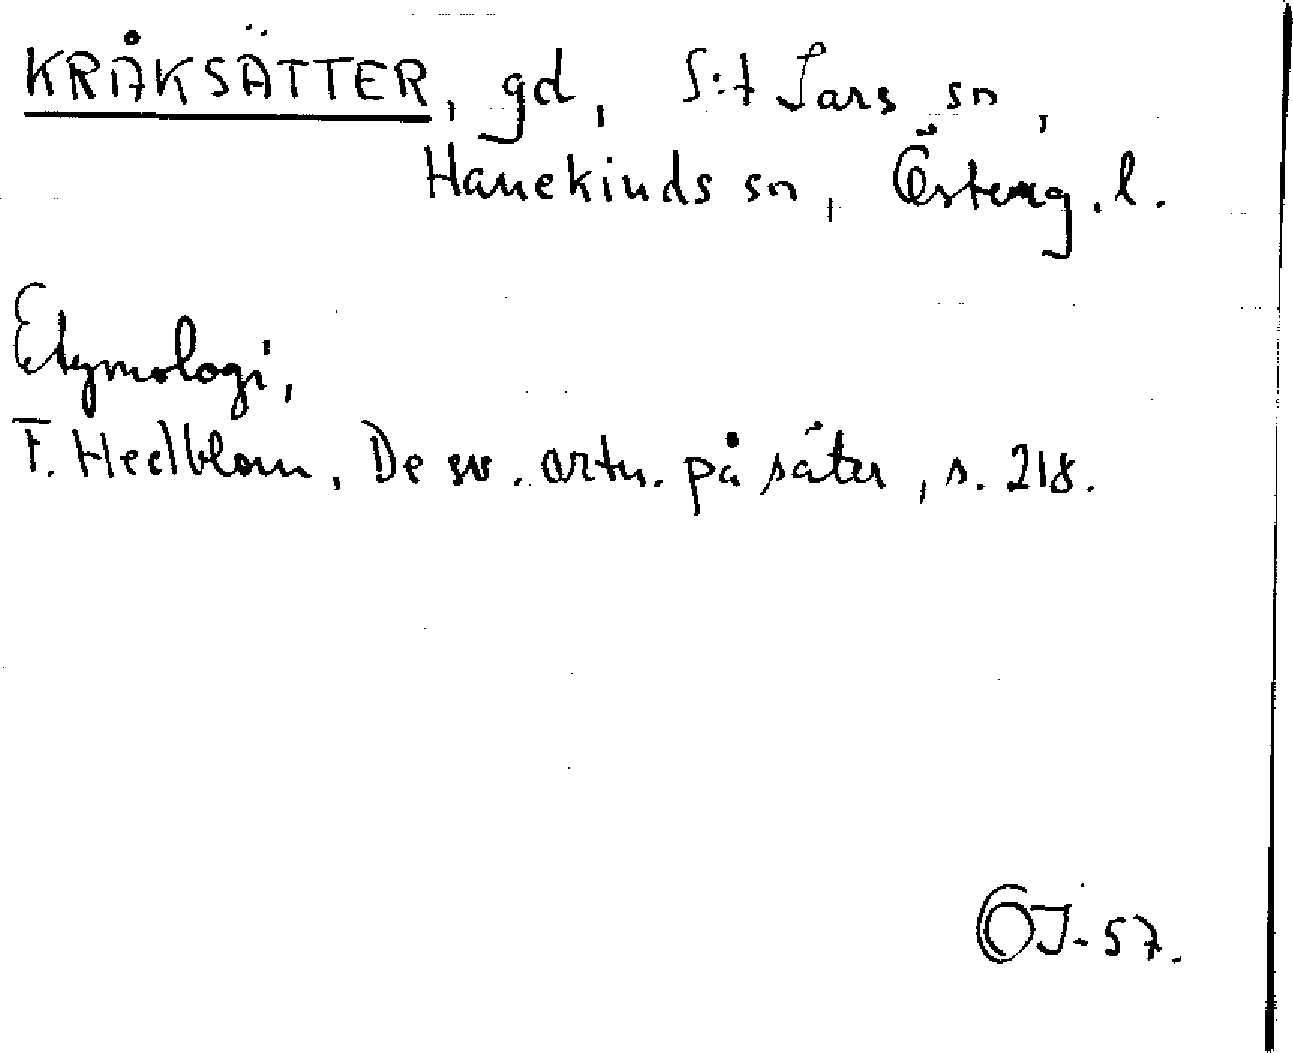 KRÅKSÄTTER, gd, S:t Lars sn,
Hanekinds sn, Österg. l.
Etymologi,
F. Hedblom, De sv. ortn. på säter, s. 218.
OJ-57.